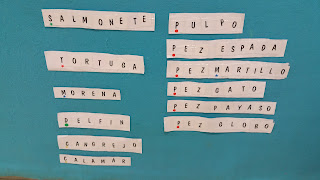 SALMONETE
TORTUGA
MORENA
DELFÍN
CANGREJO
CALAMAR
PULPO
PEZ ESPADA
PEZ MARTILLO
PEZ GATO
PEZ PAYASO
PEZ GLOBO